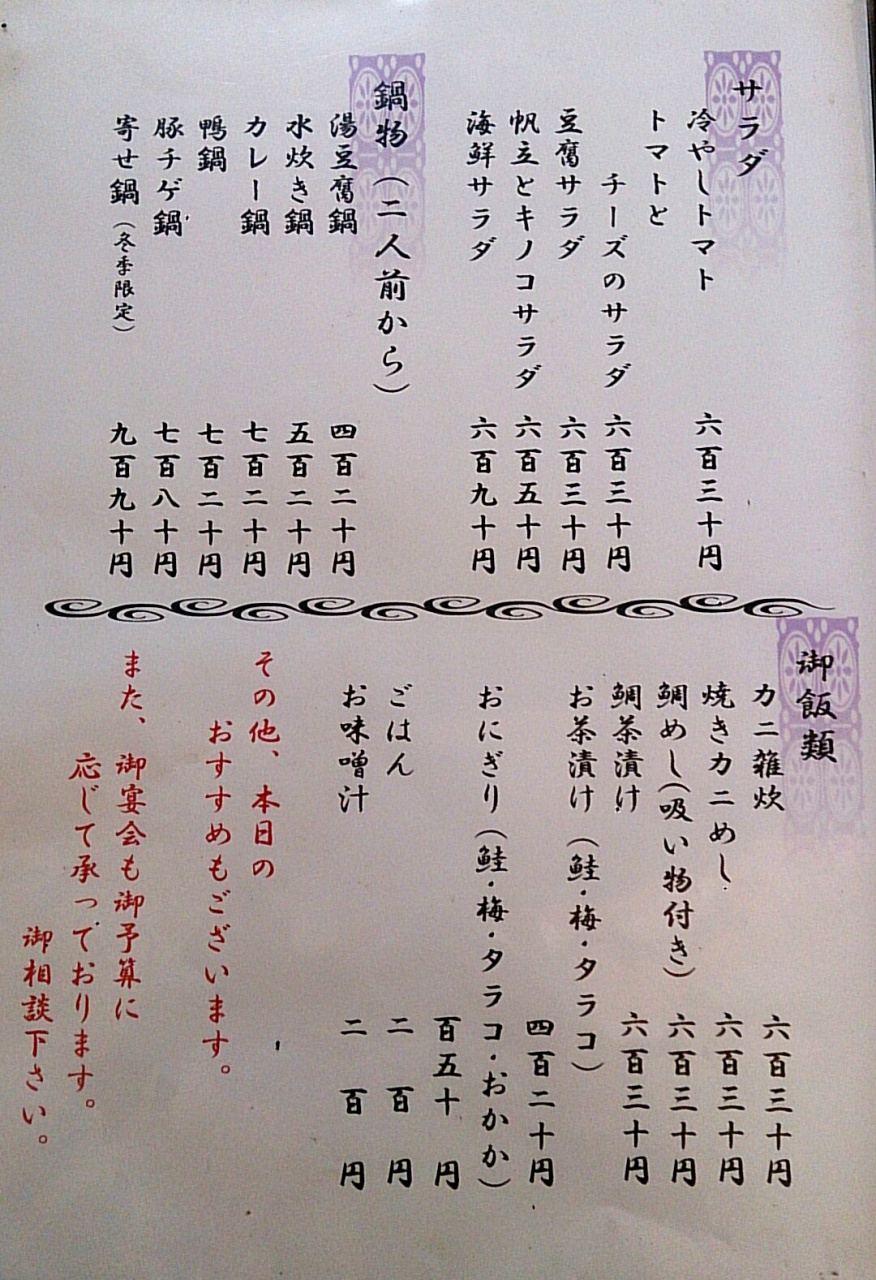 サラダ
冷やしトマト 六百三十円
トマトと
チーズのサラダ 六百三十円
豆腐サラダ 六百三十円
帆立とキノコサラダ 六百五十円
海鮮サラダ 六百九十円
鍋物（二人前から）
湯豆腐鍋 四百二十円
水炊き鍋 五百二十円
カレー鍋 七百二十円
鴨鍋 七百二十円
豚チゲ鍋 七百八十円
寄せ鍋（冬季限定） 九百九十円
御飯類
カニ雑炊 六百三十円
焼きカニめし 六百三十円
鯛めし（吸い物付き） 六百三十円
鯛茶漬け 六百三十円
お茶漬け（鮭・梅・タラコ）
四百二十円
おにぎり（鮭・梅・タラコ・おかか）
百五十円
ごはん 二百円
お味噌汁 二百円
その他、本日の
おすすめもございます。
また、御宴会も御予算に
応じて承っております。
御相談下さい。